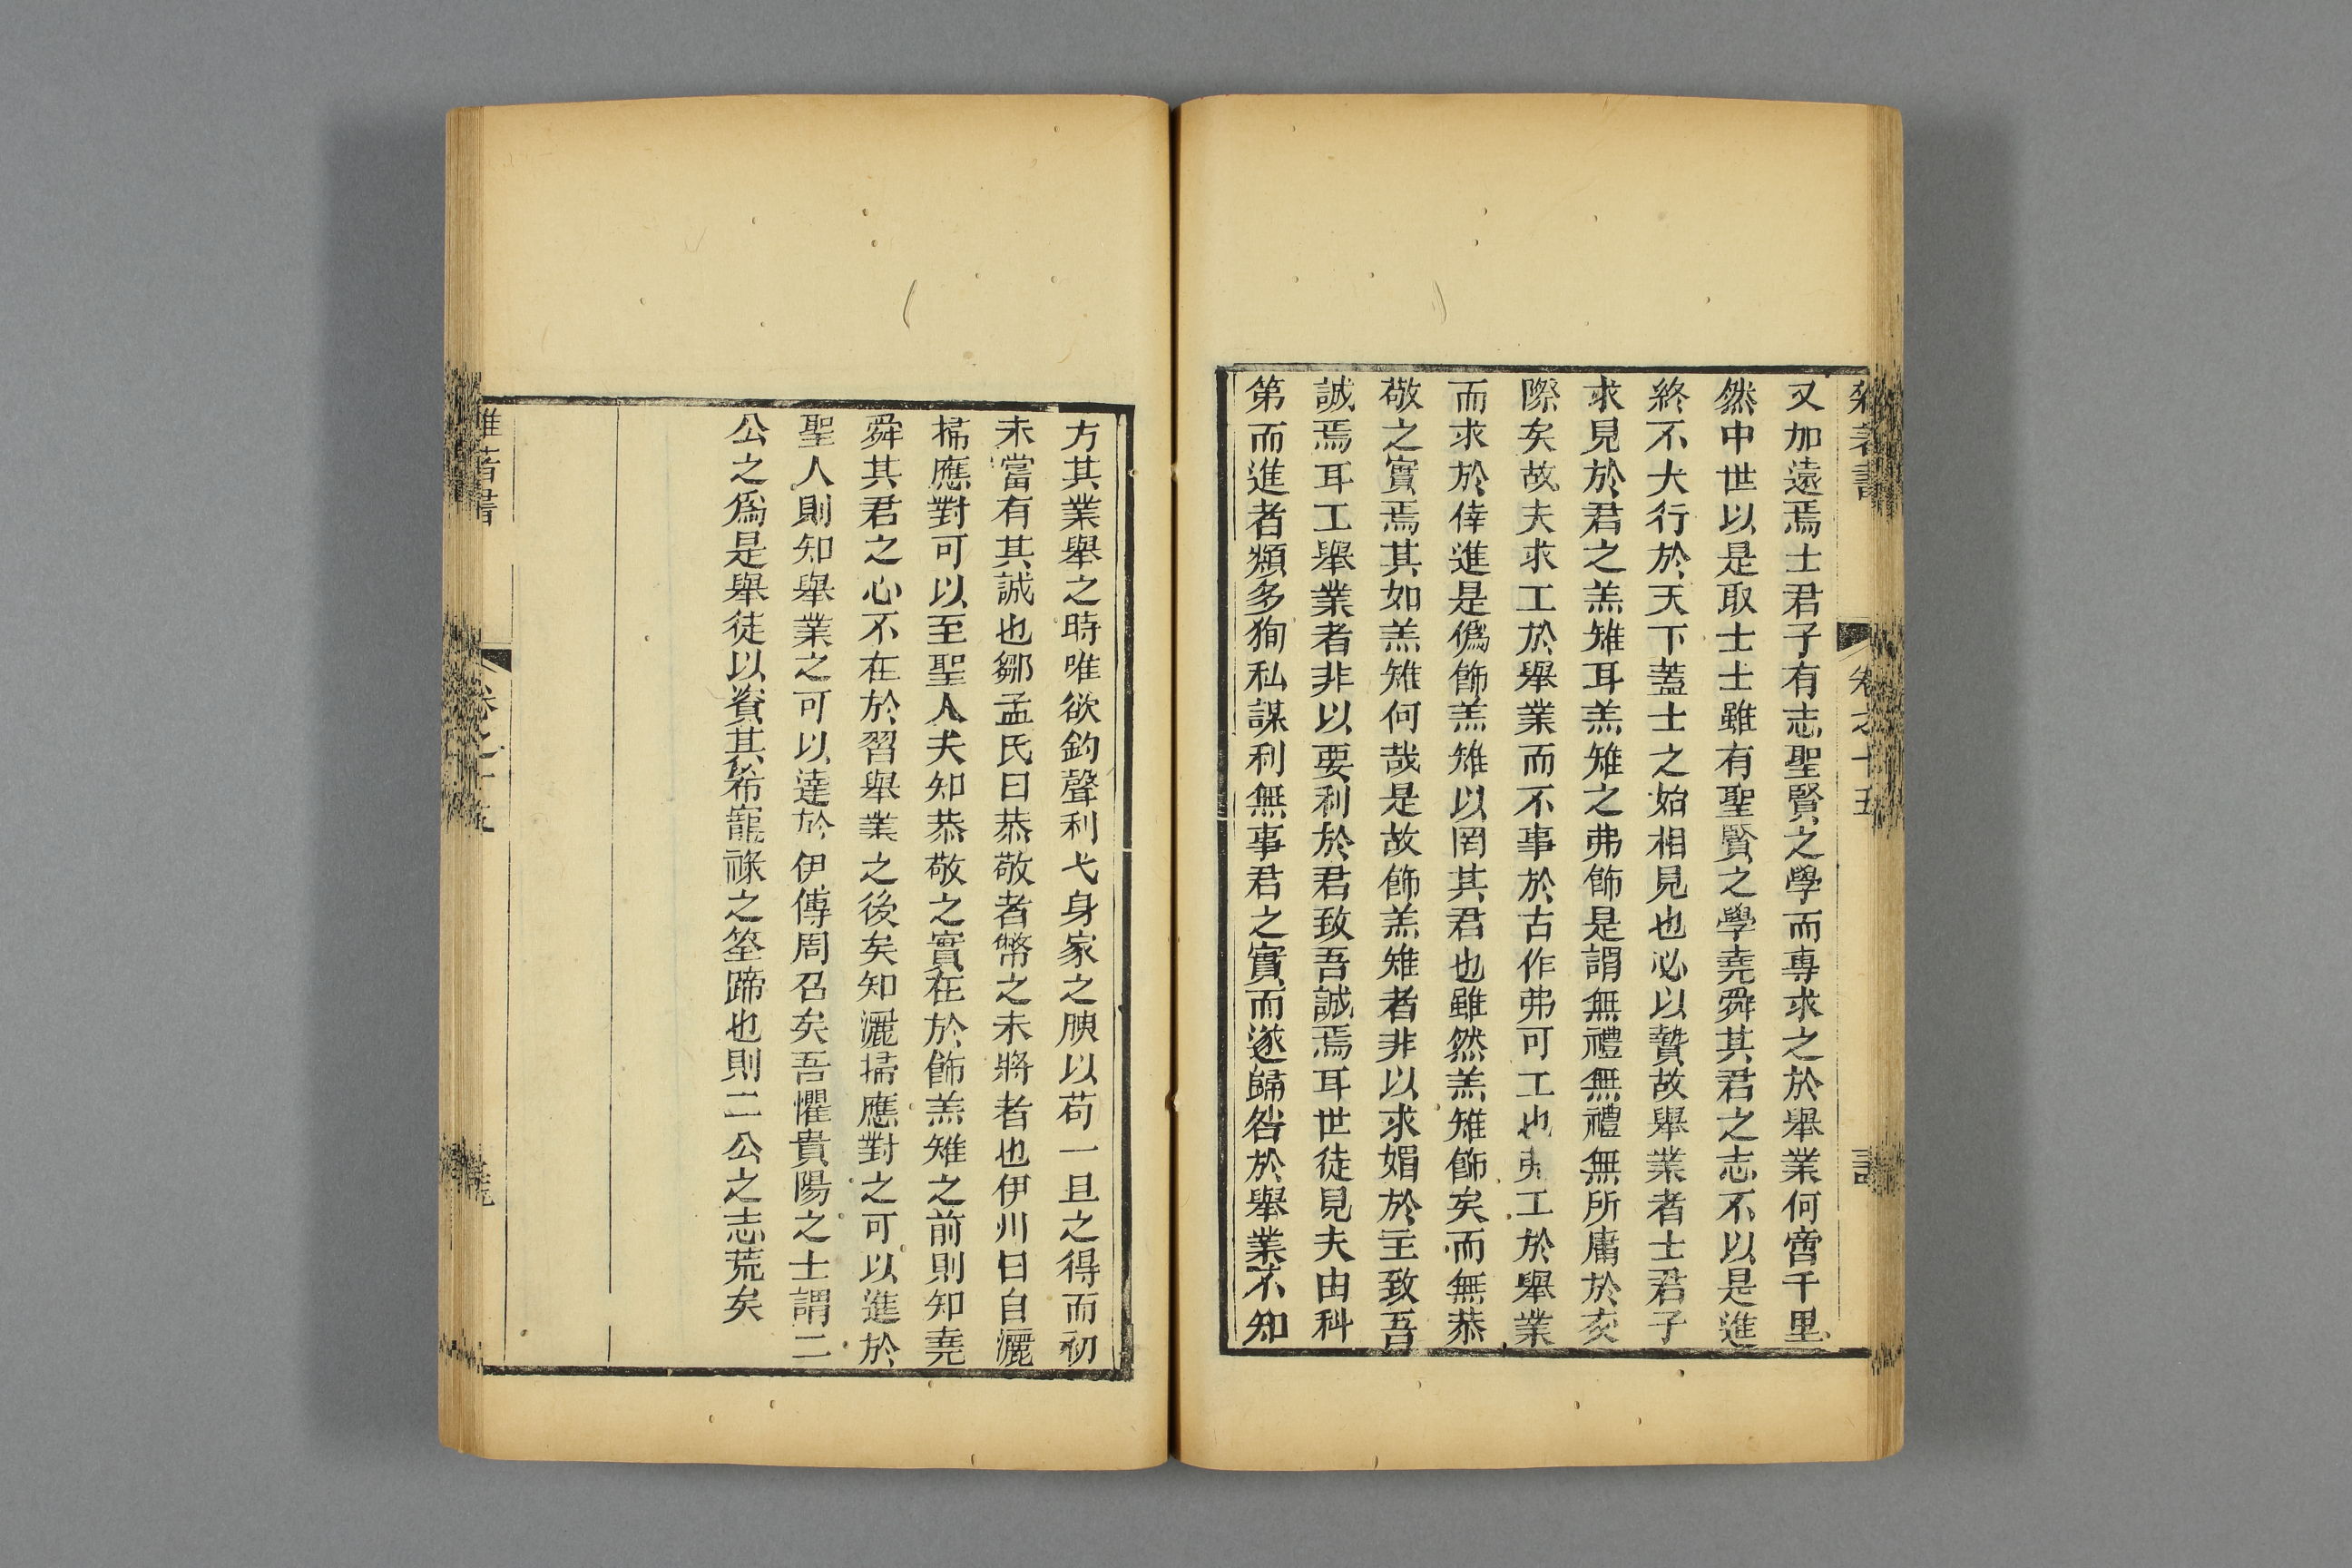 又加遠焉士君子有志聖賢之學而專求之於舉業何啻千里
然中世以是取士士雖有聖賢之學堯舜其君之志不以是進
終不大行於天下蓋士之始相見也必以贄故舉業者士君子
求見於君之羔雉耳羔雉之弗飾是謂無禮無禮無所庸於交
際矣故夫求工於舉業而不事於古作弗可工也弗工於舉業
而求於倖進是僞飾羔雉以罔其君也雖然羔雉飾矣而無恭
敬之實焉其如羔雉何哉是故飾羔雉者非以求媚於主致吾
誠焉耳工舉業者非以要利於君致吾誠焉耳世徒見夫由科
第而進者類多狥私謀利無事君之實而遂歸咎於舉業不知
方其業舉之時唯欲釣聲利弋身家之腴以苟一旦之得而初
未嘗有其誠也鄒孟氏曰恭敬者幣之未將者也伊川曰自灑
掃應對可以至聖人夫知恭敬之實在於飾羔雉之前則知堯
舜其君之心不在於習舉業之後矣知灑掃應對之可以進於
聖人則知舉業之可以達於伊傅周召矣吾懼貴陽之士謂二
公之爲是舉徒以資其希寵祿之筌蹄也則二公之志荒矣